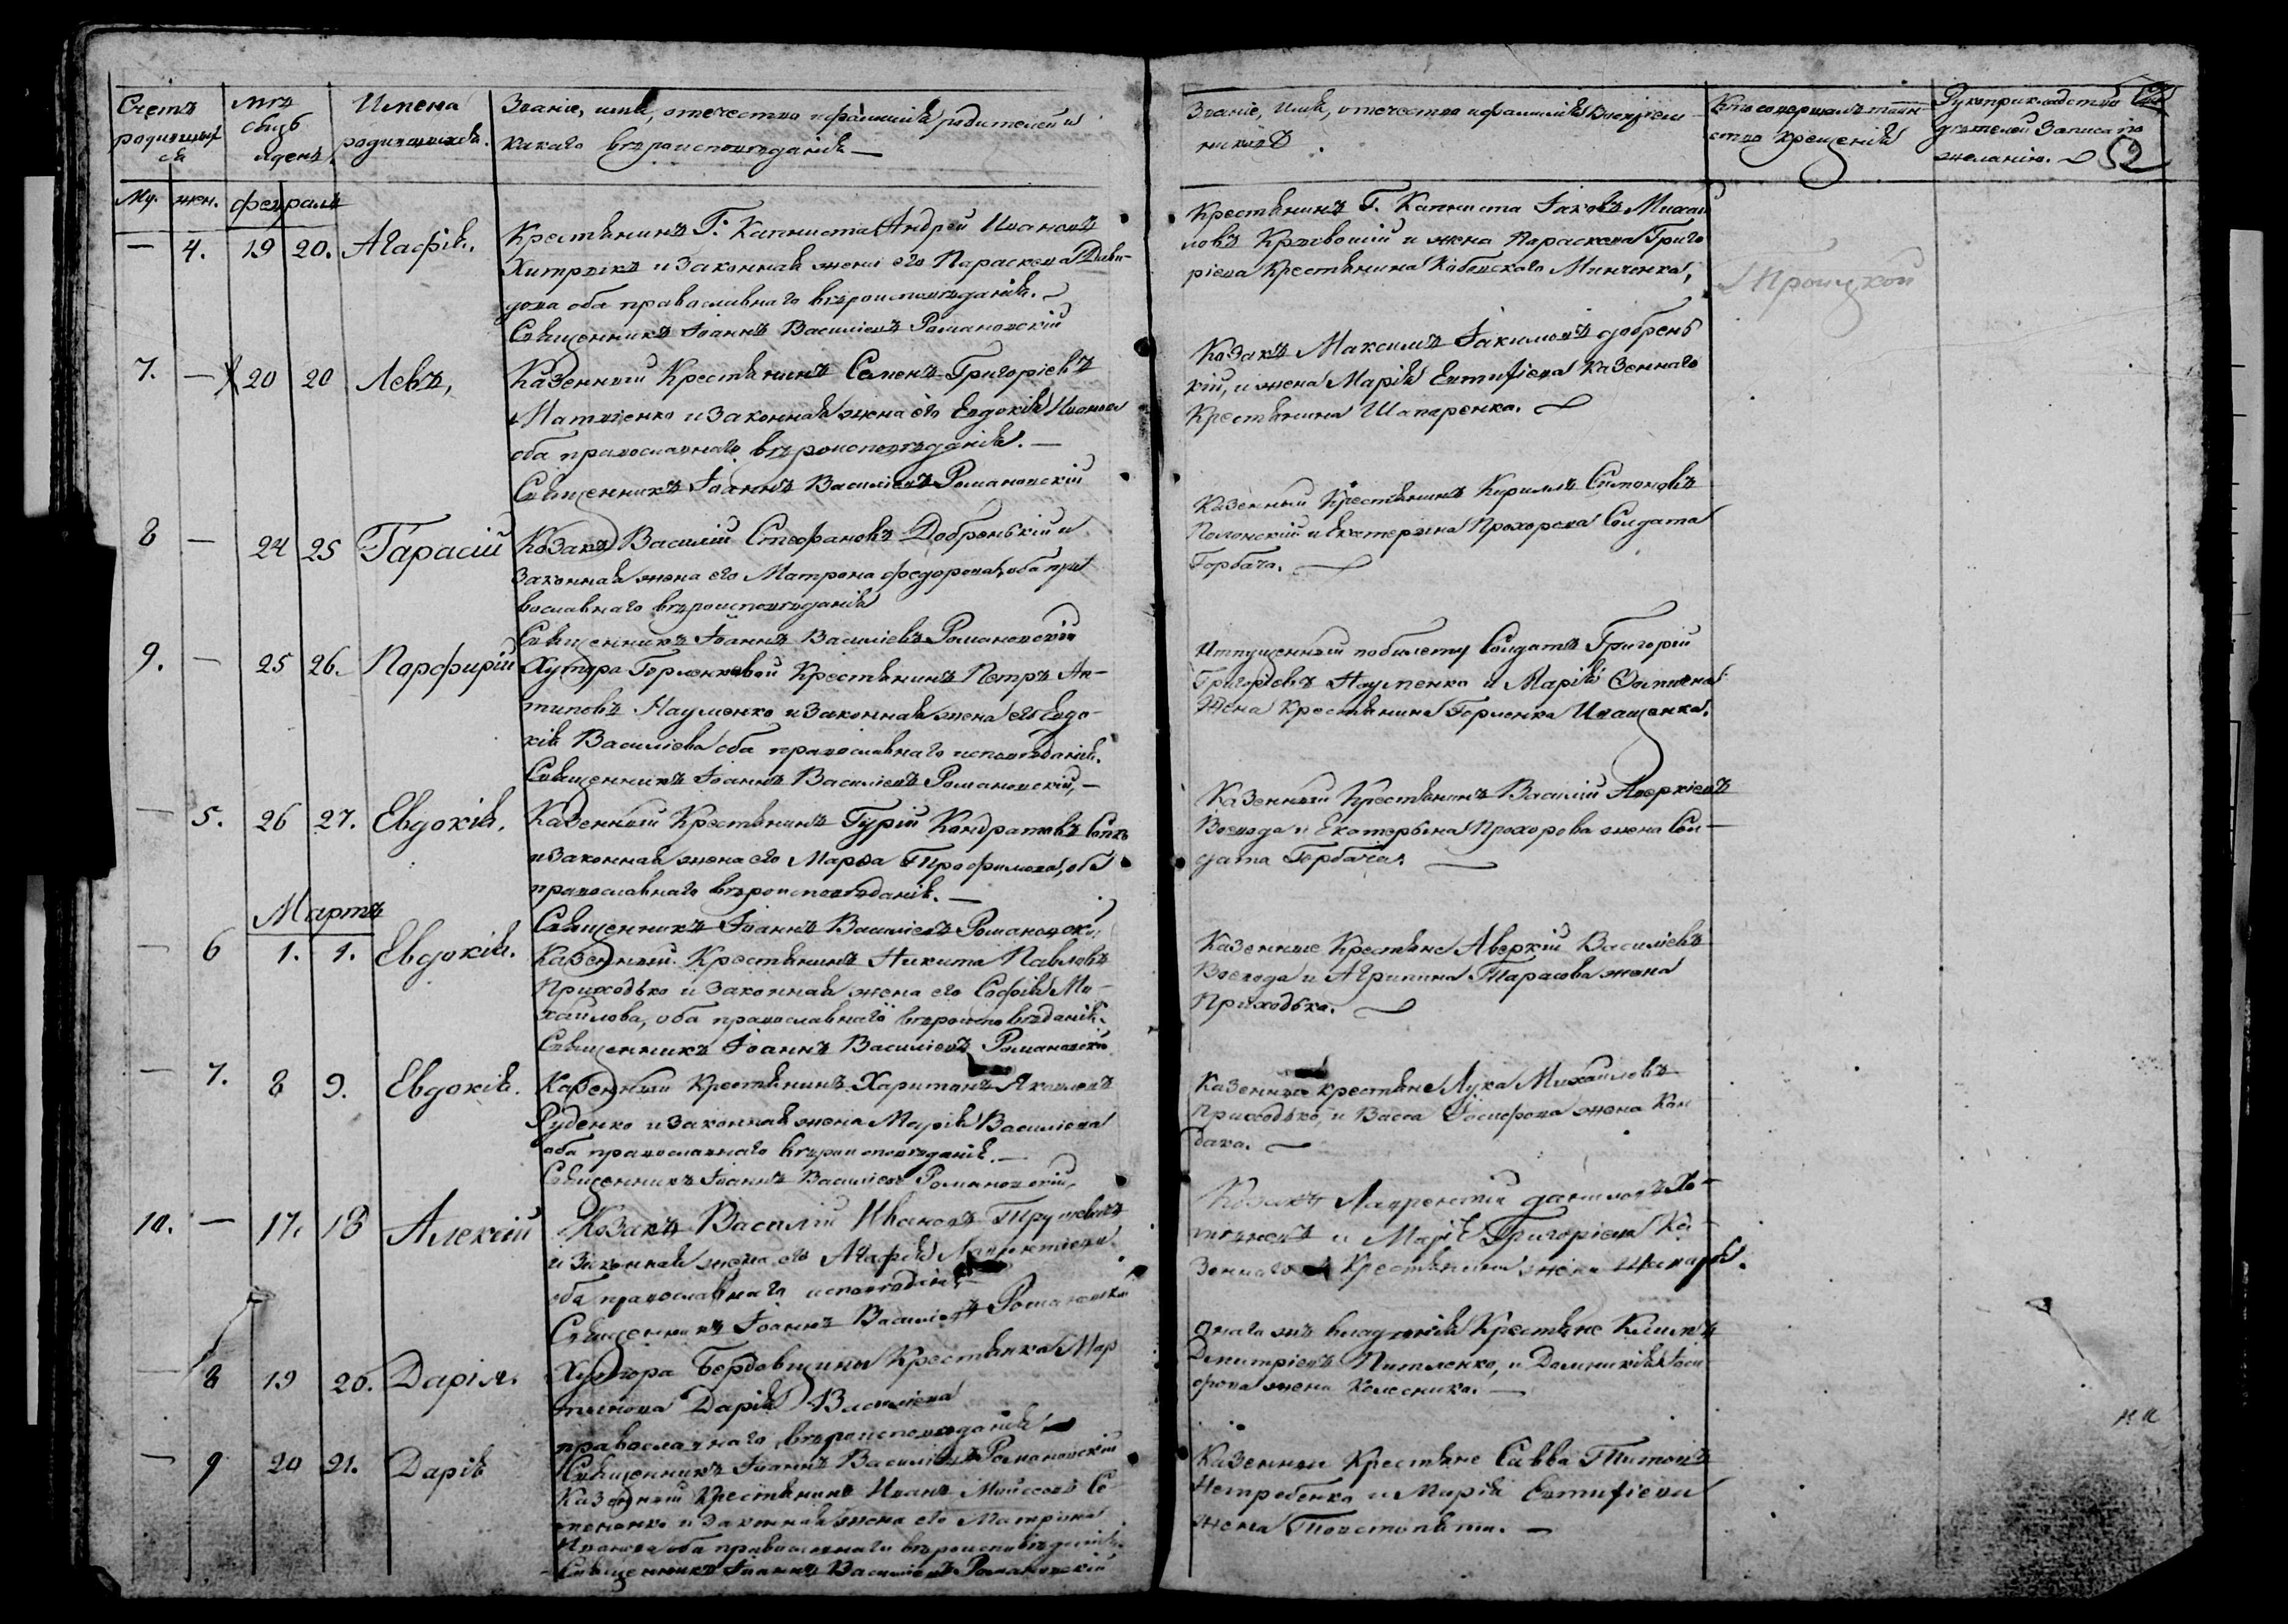 Счетъ родившихся
Мѣс. сбыть и день
Имена родившихся.
Званіе, имя, отечество и фамилія родителей и
какого вѣроисповѣданія —
Званіе, Имя, отечество и фамилія воспріем
никовъ
Кто совершалъ таин
ство крещенія
Рукоприкладство
дѣтелей Записа по
желанію.
52
Му. жен. февраль
— 4. 19 20. Агафія.
Крестьянинъ Г. Капниста Андрей Ивановъ
Хитрикъ и Законная жена его Параскева Дави-
дова оба православнаго вѣроисповѣданія.
Священникъ Іоаннъ Василіевъ Романовскій
Крестьянинъ Г. Капниста Іаковъ Михай
ловъ Кривошій и жена Параскева Григо
ріева Крестьянина Минченка,
Троицкой
7. — 20 20 Левъ,
Казенный Крестьянинъ Семенъ Григоріевъ
Матвіенко и Законная жена его Евдокія Иванова
оба православнаго вѣроисповѣданія. —
Священникъ Іоаннъ Василіевъ Романовскій
Козакъ Максимъ Іакимовъ добрень
кій, и жена Марія Евтифіева Казеннаго
Крестьянина Шапаренка.
8 — 24 25 Тарасій
Козакъ Василій Стефановъ Добренькій и
Законная жена его Матрона федорова, оба пра
вославнаго вѣроисповѣданія
Священникъ Іоаннъ Василіевъ Романовскій
Казенный Крестьянинъ Кириллъ Симоновъ
и Екатерина Прохорова Солдата
Горбача.
9. — 25 26. Порфирій
Хутора Горленковой Крестьянинъ Петръ Ан-
типовъ Науменко и Законная жена его Евдо-
кія Василіева оба православнаго исповѣданія.
Священникъ Іоаннъ Василіевъ Романовскій, —
Отпущенный по билету Солдатъ Григорій
Григоріевъ Науменко и Марія
Жена Крестьянина Горленка Иващенка.
— 5. 26 27. Евдокія.
Казенный Крестьянинъ Гурій Кондратовъ
и Законная жена его Марѳа Трофимова, оба
православнаго вѣроисповѣданія. —
Священникъ Іоаннъ Василіевъ Романовскій
Казенный Крестьянинъ Василій Аверкіевъ
Воевода и Екатерина Прохорова жена Сол-
дата Горбача.
Мартъ
— 6 1. 1. Евдокія.
Казенный Крестьянинъ Никита Павловъ
Приходько и Законная жена его Софія Ми-
хайлова, оба православнаго вѣроисповѣданія.
Священникъ Іоаннъ Василіевъ Романовскій
Казенные Крестьяне Аверкій Василіевъ
Воевода и Агрипина Тарасова жена
Приходька.
— 7. 8 9. Евдокія.
Казенный Крестьянинъ Харитонъ Яковлевъ
Руденко и Законная жена Марія Василіева
оба православнаго вѣроисповѣданія. —
Священникъ Іоаннъ Василіевъ Романовскій,
Казенные крестьяне Лука Михайловъ
Приходько, и Васса Іосифова жена Кон
дака.
10. — 17. 18 Алексій
Козакъ Василій Ивановъ
и Законная жена его Агафія
оба православнаго исповѣданія
Священникъ Іоаннъ Василіевъ Романовскій
Козакъ Лаврентій даниловъ
и Марія Григоріева Ка-
зеннаго Крестьянина жена
— 8 19 20. Дарія.
Хутора Бердовщины Крестьянка Мар
Дарія Василіева
православнаго вѣроисповѣданія
Священникъ Іоаннъ Василіевъ Романовскій
Онаго жъ владѣнія Крестьяне Климъ
Димитріевъ и Домникія Іоси
фова жена Колесника. —
— 9 20 21. Дарія
Казенный Крестьянинъ Иванъ Мойсеевъ Се
мененко и Законная жена его Матрона
Иванова оба православнаго вѣроисповѣданія.
Священникъ Іоаннъ Василіевъ Романовскій
Казенные Крестьяне Савва Титовъ
Нетребенко и Марія Евтифіева
жена Толстопята. —